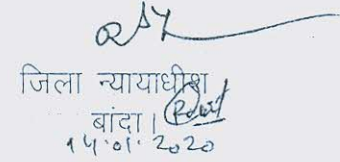 जिला न्यायाधीश
बांदा।
14.01.2020